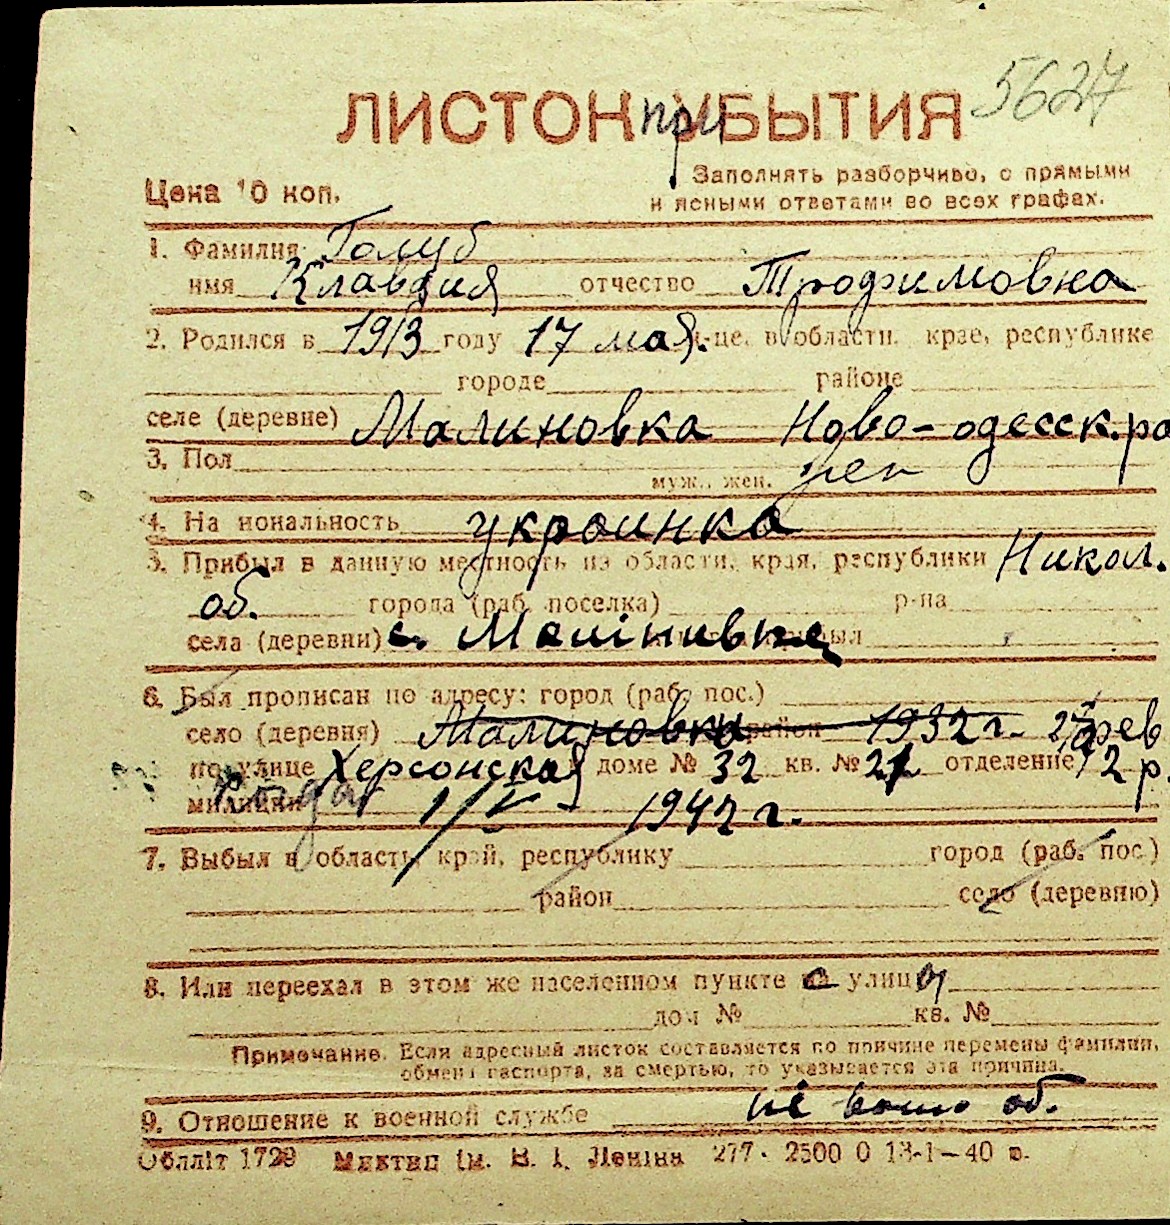 5627
ЛИСТОК при УБЫТИЯ
Цена 10 коп.
Заполнять разборчиво, с прямыми
и ясными ответами во всех графах.
1. Фамилия Голуб
имя Клавдия отчество Трофимовна
2. Родился в 1913 году 17 мая м-це, в области, крае, республике
городе районе
селе (деревне) Малиновка Ново-одесск. ра
3. Пол жен
муж., жен.
4. Национальность украинка
5. Прибыл в данную местность из области, края, республики Никол.
об. города (раб. поселка) р-на
села (деревни) с. Малінивка
6. Был прописан по адресу: город (раб. пос.)
село (деревня) Малиновка район 1932 г.
по улице Херсонская доме № 32 кв. № отделение 2 р.
милиции 1/V 1942 г.
7. Выбыл в область, край, республику город (раб. пос.)
район село (деревню)
8. Или переехал в этом же населенном пункте с улицы
дом № кв. №
Примечание. Если адресный листок составляется по причине перемены фамилии,
обмена паспорта, за смертью, то указывается эта причина.
9. Отношение к военной службе не воен об.
Обллiт 1729 Миктип ім. В. І. Леніна 277 - 2500 0 13-1-40 р.